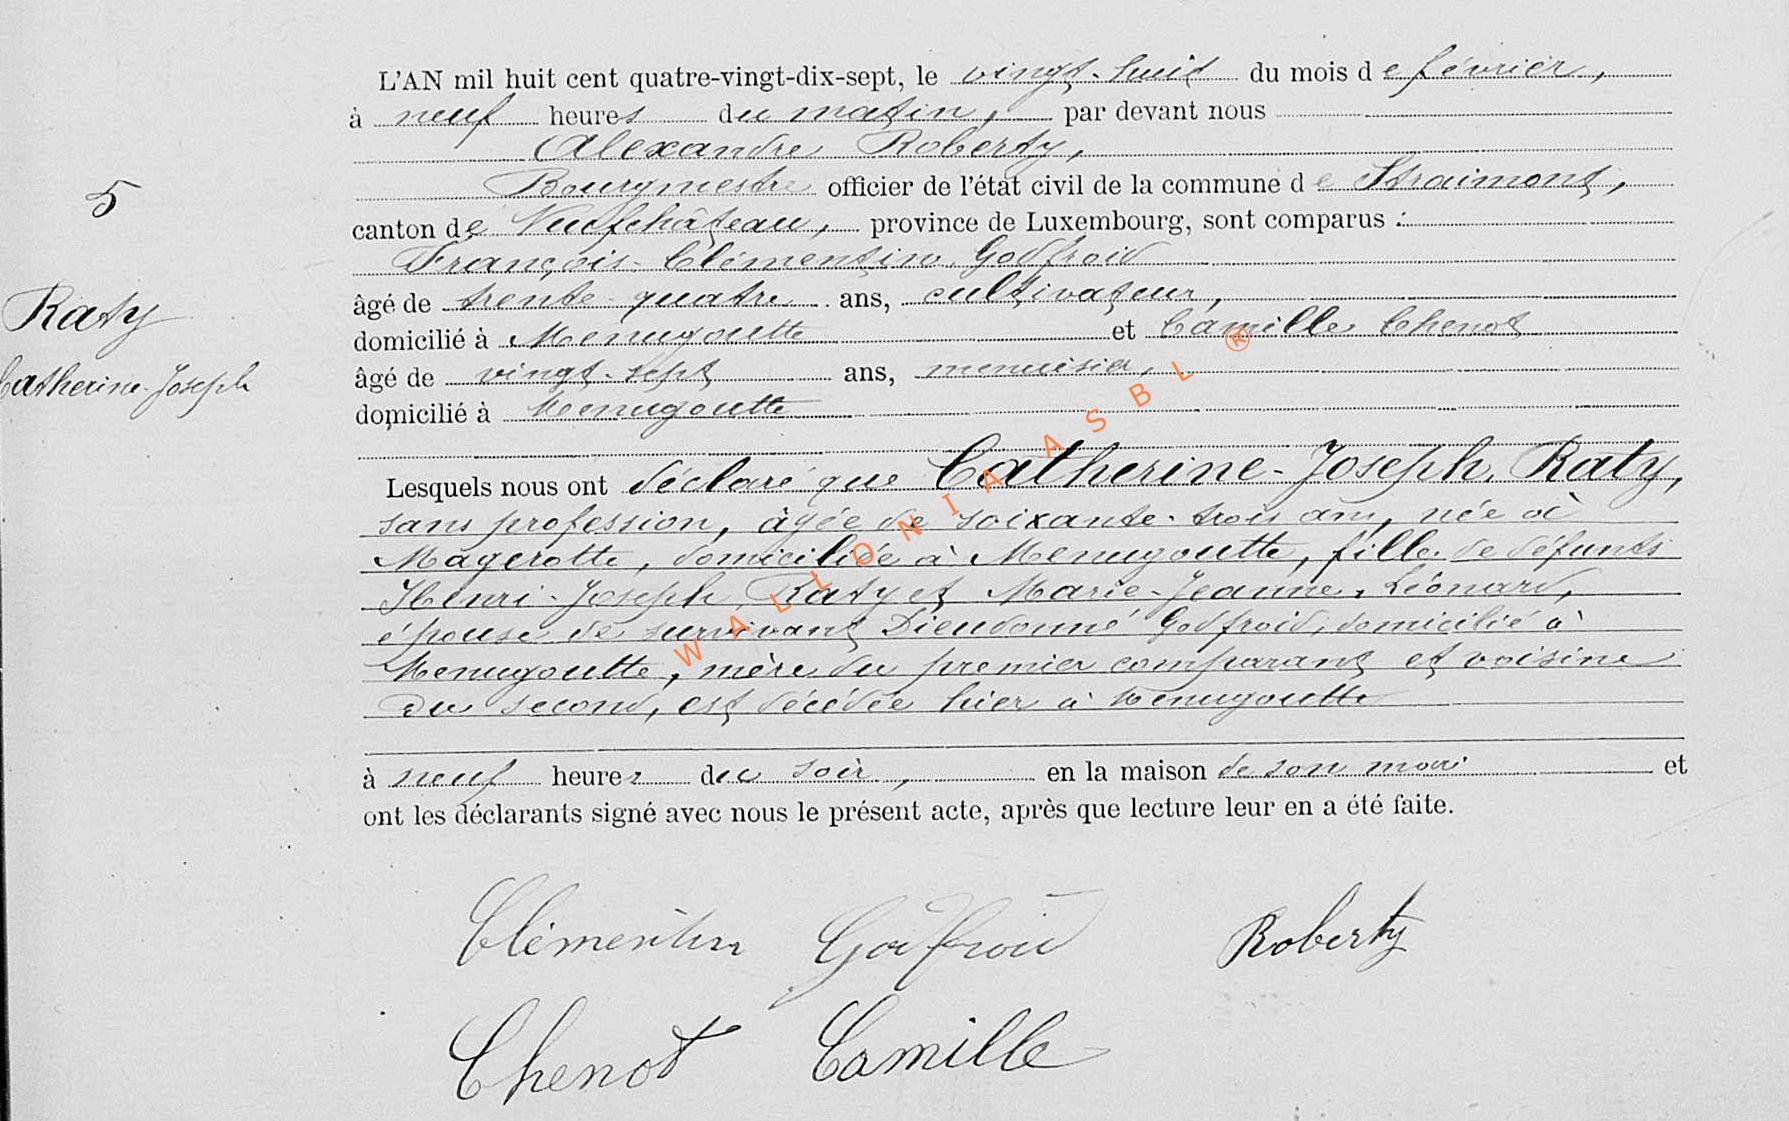 L'AN mil huit cent quatre-vingt-dix-sept, le vingt-huit du mois de février,
à neuf heures du matin, par devant nous
Alexandre Roberty,
Bourgmestre officier de l'état civil de la commune de Straimont,
canton de Neufchâteau, province de Luxembourg, sont comparus :
François-Clémentin Godfroid
âgé de trente-quatre ans, cultivateur,
domicilié à Menugoutte et Camille Chenot
âgé de vingt-sept ans, menuisier,
domicilié à Menugoutte
5
Raty
Catherine-Joseph
Lesquels nous ont déclaré que Catherine-Joseph Raty,
sans profession, âgée de soixante-trois ans, née à
Magerotte, domiciliée à Menugoutte, fille de défunts
Henri-Joseph Raty et Marie-Jeanne Léonard,
épouse de survivant Dieudonné Godfroid, domicilié à
Menugoutte, mère du premier comparant et voisine
du second, est décédée hier à Menugoutte
à neuf heures du soir, en la maison de son mari et
ont les déclarants signé avec nous le présent acte, après que lecture leur en a été faite.
Clémentin Godfroid Roberty
Chenot Camille
WALLONIA ASBL ®